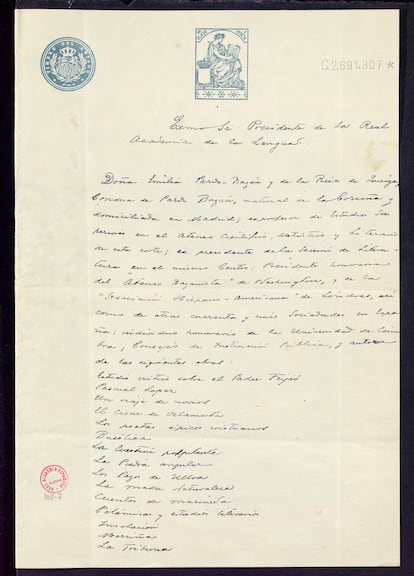 C.2691.307 *
Exmo Sr. Presidente de la Real
Academia de la Lengua.
Doña Emilia Pardo-Bazán y de la Rúa de Quiroga,
Condesa de Pardo Bazán, natural de la Coruña y
domiciliada en Madrid; ex profesora de Estudios Su
periores en el Ateneo Científico, Artístico y Literario
de esta corte; ex presidente de la Sección de Litera-
tura en el mismo Centro; Presidente honorario
del "Ateneo " de Washington, y de la
"Asociación Hispano-Americana" de Londres, así
como de otras cuarenta y seis Sociedades en Espa
ña; individuo honorario de la Universidad de Coim
bra, Consejero de Instrucción Pública, y autora
de las siguientes obras:
Estudio crítico sobre el Padre Feijóo
Pascual Lopez
Un viaje de novios
El Cisne de Vilamorta
Los poetas épicos cristianos
Bucólica
La Cuestión palpitante
La Piedra angular
Los Pazos de Ulloa
La madre Naturaleza
Cuentos de marineda
Polémicas y estudios literarios
Insolación
Morriña
La Tribuna
REAL ACADEMIA ESPAÑOLA